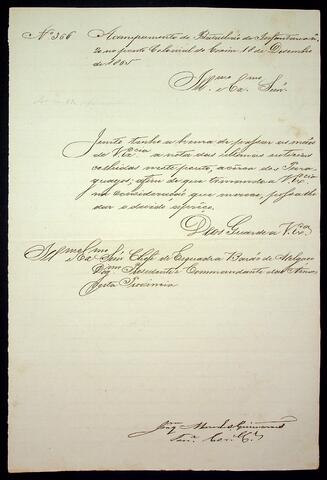 Nº 366 Acampamento do Batalhão de Infantaria nº
no ponto Colonial do Coxim 18 de Dezembro
de 1865
Illmo e Exmo Senr
Junto tenho a honra de passar as mãos
de V. Excia a nota das ultimas noticias
colhidas neste ponto, acerca dos Para
guayos; afim de que tomando a V. Excia
na consideração que merece, possa lhe
dar o devido
Deos Guarde a V. Excia
Illmo e Exmo Senr Chefe de Esquadra Barão de Melgaço
Dgmo Presidente e Commandante das Armas
desta Provincia
Joaqm Mendes Guimarães
Tene Corel